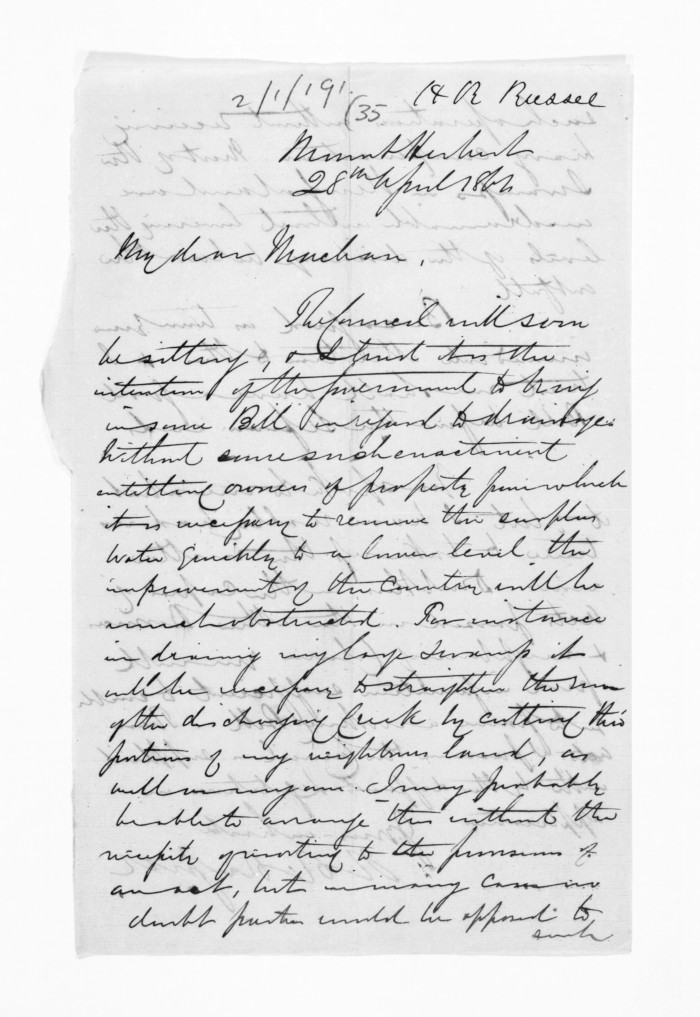 2/1/191.
(35
H R Russel
Mount Herbert
28th April 1864
My dear Maclean,
The Council will soon
be sitting, & I trust it is the
intention of the Government to bring
in some Bill in regard to drainage.
Without some such enactment
entitling owners of property from which
it is necessary to remove the surplus
water quickly to a lower level the
improvement of the country will be
much obstructed. For instance
in draining my large swamp it
will be necessary to straighten the
of the discharging Creek by cutting thro
portions of my neighbours land, as
well as my own. I may probably
be able to arrange this without the
necessity of resorting to the provisions of
an act, but in many cases no
doubt parties would be opposed to
such